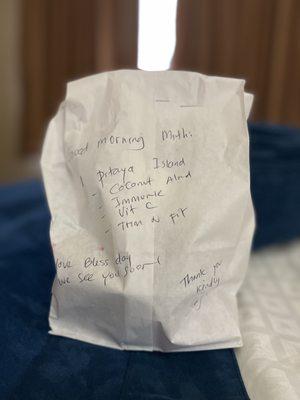 Good Morning Mith.
1 Pitaya Island
- Coconut Almd
- Immune
- Vit C
- Trim N Fit
Have Bless day
We see you soon
Thank you
Kindly